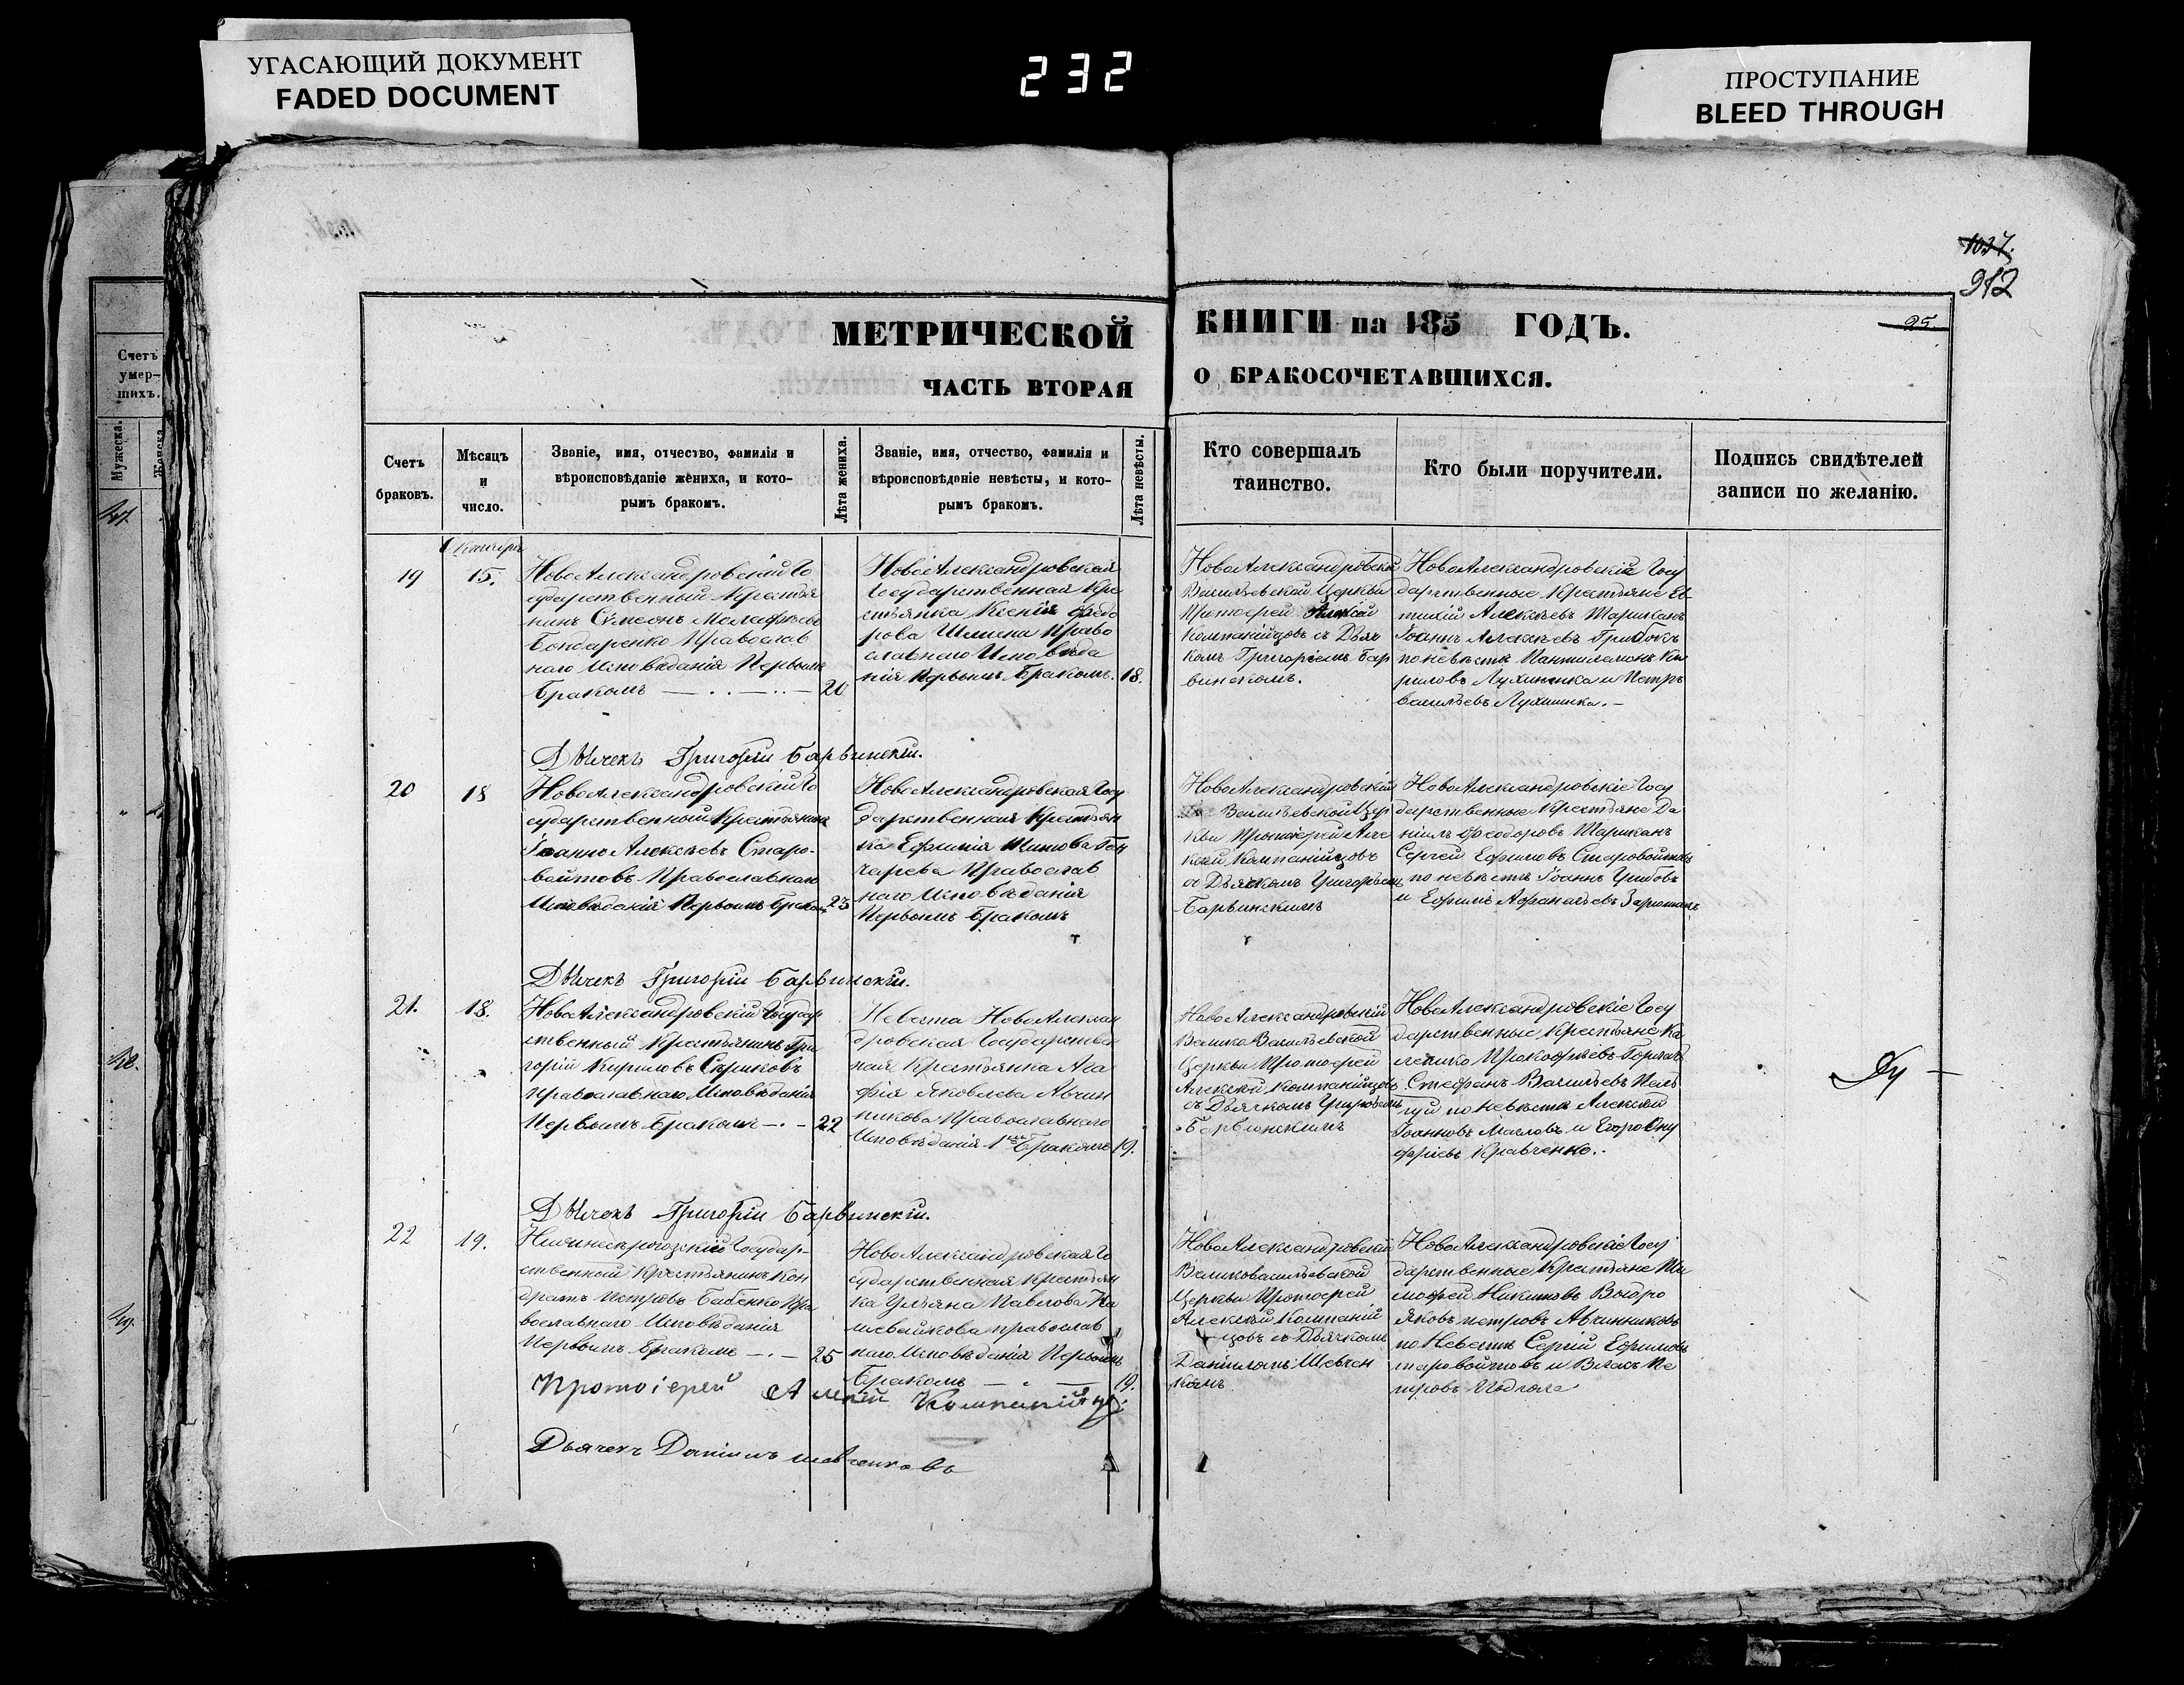 УГАСАЮЩИЙ ДОКУМЕНТ
FADED DOCUMENT
232
ПРОСТУПАНИЕ
BLEED THROUGH
1037.
912
МЕТРИЧЕСКОЙ КНИГИ на 185 ГОДЪ.
25
ЧАСТЬ ВТОРАЯ О БРАКОСОЧЕТАВШИХСЯ.
Счетъ
умер-
шихъ.
Мужеска.
Счетъ
браковъ.
Мѣсяцъ
и
число.
Званіе, имя, отчество, фамилія и
вѣроисповѣданіе жениха, и кото-
рымъ бракомъ.
Лѣта жениха.
Званіе, имя, отчество, фамилія и
вѣроисповѣданіе невѣсты, и кото-
рымъ бракомъ.
Лѣта невѣсты.
Кто совершалъ
таинство.
Кто были поручители.
Подпись свидѣтелей
записи по желанію.
19
Октября
15.
НовоАлександровскій Го
сударственный Крестья
нинъ Сѵмеонъ
Бондаренко Православ
наго Исповѣданія Первымъ
Бракомъ
20
НовоАлександровская
Государственная Кре
стьянка Ксенія Ѳедо
рова Право
славнаго Исповѣда
нія Первымъ Бракомъ.
18.
НовоАлександровской
Васильевской Церкви
Протоерей Алексій
Компанійцовъ съ Дьяч
комъ Григоріемъ Бар
винскомъ.
НовоАлександровскіе Госу
дарственные Крестьяне Ев
тихій Алексѣевъ
Іоаннъ Алексѣевъ
по невѣстѣ Пантилемонъ Ки
риловъ и Петръ
Васильевъ
Дьячекъ Григорій Барвинскій.
20
18
НовоАлександровскій Го
сударственный Крестьянинъ
Іоаннъ Алексѣевъ Старо-
войтовъ Православнаго
Исповѣданія Первымъ Бракомъ
23
НовоАлександровская Госу
дарственная Крестьян
ка Ефимія Титова Гон
чарева Православ
наго Исповѣданія
Первымъ Бракомъ
НовоАлександровскій
Васильевской Цер
кви Протоіерей Але
ксій Компанійцовъ
съ Дьячкомъ Григоріемъ
Барвинскимъ
НовоАлександровскіе Госу
дарственные Крестьяне Да
ніилъ Ѳеодоровъ
Сергей Ефимовъ Старовойтовъ
по невѣстѣ Іоаннъ
и Ефимъ Афанасьевъ
Дьячекъ Григорій Барвинскій.
21.
18.
НовоАлександровскій Государ
ственный Крестьянинъ Гри
горій Кириловъ
Православнаго Исповѣданія
Первымъ Бракомъ
22
Невѣста НовоАлексан
дровская Государствен
ная Крестьянка Ага
фія Яковлева Авчин
никова Православнаго
Исповѣданія 1мъ Бракомъ
19.
НовоАлександровскій
Велико Васильевской
Церкви Протоерей
Алексѣй Компанійцовъ
съ Дьячкомъ Григоріемъ
Барвинскимъ
НовоАлександровскіе Госу
дарственные Крестьяне Ка
Прокофьевъ
Стефанъ Васильевъ
по невѣстѣ Алексѣй
Іоанновъ Масловъ и Егоръ Ону
фріевъ Кравченко.
Дьячекъ Григорій Барвинскій.
22
19.
Государ-
ственный Крестьянинъ Кон
дратъ Петровъ Бабенко Пра
вославнаго Исповѣданія
Первымъ Бракомъ
25
НовоАлександровская Го
сударственная Крестьян
ка Ульяна Павлова Ка
православ
наго Исповѣданія Первымъ
Бракомъ
19.
НовоАлександровской
Великовасильевской
Церкви Протоерей
Алексѣй Компаній
цовъ съ Дьячкомъ
Даніиломъ Шевчен
комъ
НовоАлександровскіе Госу
дарственные Крестьяне Ти
мофей Никитовъ
Яковъ Петровъ Авчинниковъ
по невѣстѣ Сергій Ефимовъ
таровойтовъ и Власъ Пе
тровъ
Протоіерей Алексѣй Компанійцовъ
Дьячекъ Даніилъ Шевченковъ